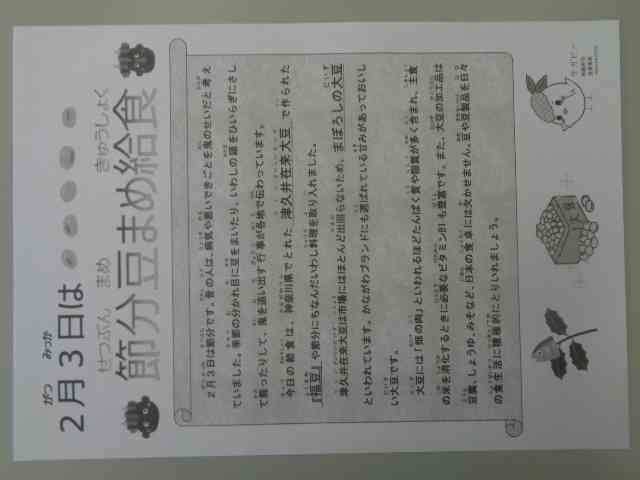 2月3日は
節分豆まめ給食
2月3日は節分です。昔の人は、病気や悪いできごとを鬼のせいだと考え
ていました。季節の分かれ目に豆をまいたり、いわしの頭をひいらぎにさし
て飾ったりして、鬼を追い出す行事が各地で伝わっています。
今日の給食は、神奈川県でとれた 津久井在来大豆 で作られた
『福豆』や節分にちなんだいわし料理を取り入れました。
津久井在来大豆は市場にはほとんど出回らないため、まぼろしの大豆
といわれています。かながわブランドにも選ばれている甘みがあっておいし
い大豆です。
大豆には「畑の肉」といわれるほどたんぱく質や脂質が多く含まれ、主食
の米を消化するときに必要なビタミンB1も豊富です。また、大豆の加工品は
豆腐、しょうゆ、みそなど、日本の食卓には欠かせません。豆や豆製品を日々
の食生活に積極的にとりいれましょう。